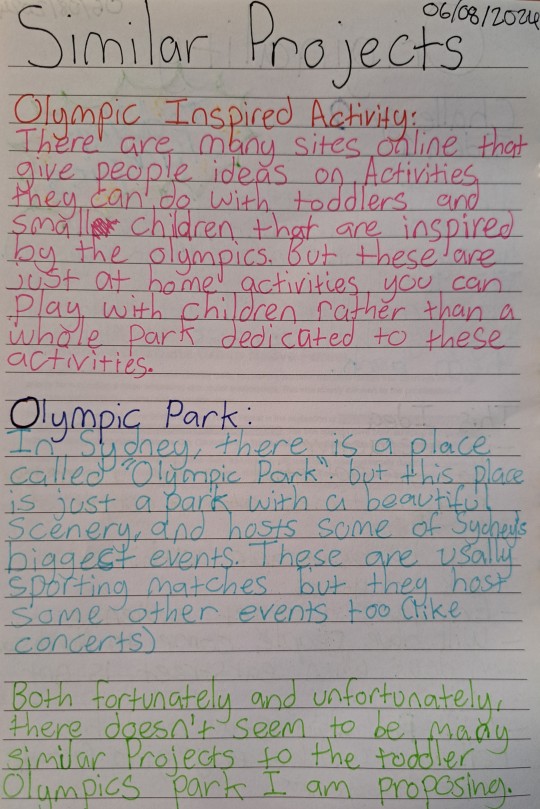 06/08/2024
Similar Projects
Olympic Inspired Activity:
There are many sites online that
give people ideas on Activities
they can do with toddlers and
small children that are inspired
by the olympics. But these are
just at home activities you can
Play with children rather than a
whole park dedicated to these
activities.
Olympic Park:
In Sydney, there is a place
called "Olympic Park". but this place
is just a park with a beautiful
scenery, and hosts some of Sydney's
biggest events. These are usally
sporting matches but they host
some other events too (like
concerts)
Both fortunately and unfortunately,
there doesn't seem to be many
similar Projects to the toddler
Olympics park I am proposing.